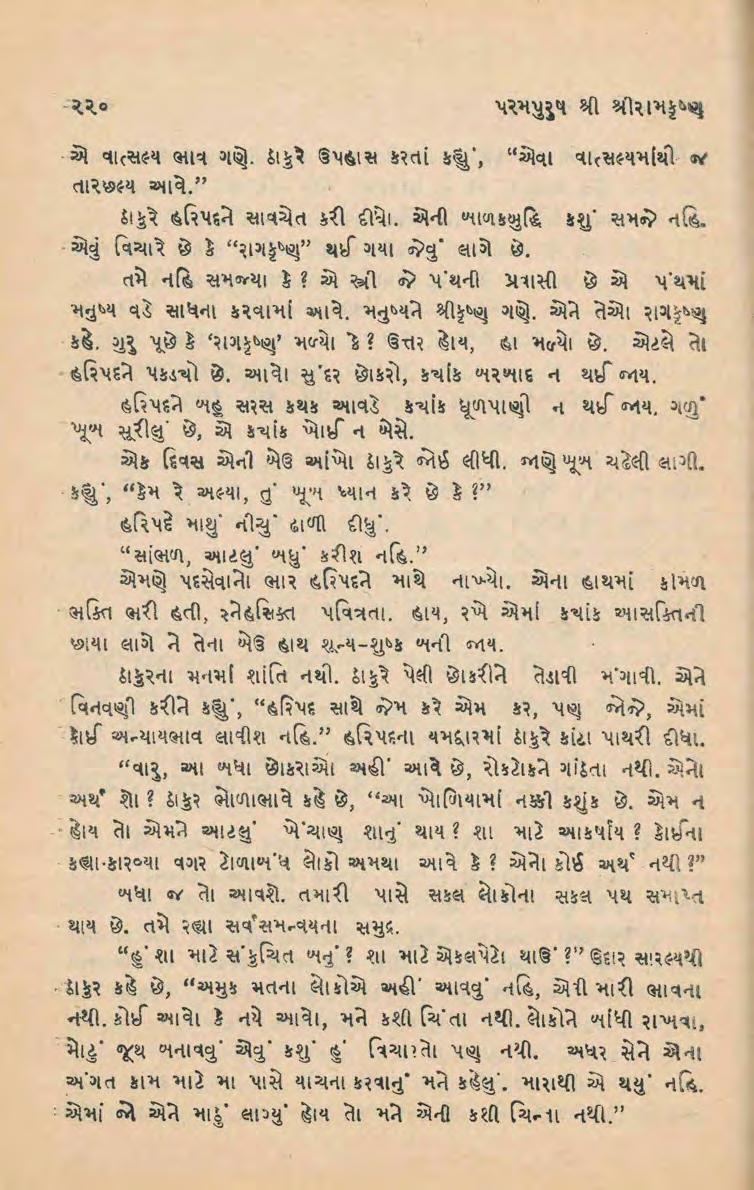 ૨૨૦ પરમપુરુષ શ્રી શ્રીરામકૃષ્ણ
એ વાત્સલ્ય ભાવ ગણે. ઠાકુરે ઉપહાસ કરતાં કહ્યું, “એવા વાત્સલ્યમાંથી જ
તારછલ્ય આવે.”
ઠાકુરે હરિપદને સાવચેત કરી દીધો. એની બાળકબુદ્ધિ કશું સમજે નહિ.
એવું વિચારે છે કે “રાગકૃષ્ણ” થઈ ગયા જેવું લાગે છે.
તમે નહિ સમજ્યા કે? એ સ્ત્રી જે પંથની પ્રવાસી છે એ પંથમાં
મનુષ્ય વડે સાધના કરવામાં આવે. મનુષ્યને શ્રીકૃષ્ણ ગણે. એને તેઓ રાગકૃષ્ણ
કહે. ગુરુ પૂછે કે ‘રાગકૃષ્ણ’ મળ્યો કે? ઉત્તર હોય, હા મળ્યો છે. એટલે તો
હરિપદને પકડચો છે. આવો સુંદર છોકરો, કચાંક બરબાદ ન થઈ જાય.
હરિપદને બહુ સરસ કથક આવડે કચાંક ધૂળપાણી ન થઈ જાય. ગળું
ખૂબ સૂરીલું છે, એ કચાંક ખોઈ ન બેસે.
એક દિવસ એની બેઉ આંખો ઠાકુરે જોઈ લીધી. જાણે ખૂબ ચઢેલી લાગી.
કહ્યું, “કેમ રે અલ્યા, તું ખૂબ ધ્યાન કરે છે કે?”
હરિપદે માથું નીચું ઢાળી દીધું.
“સાંભળ, આટલું બધું કરીશ નહિ.”
એમણે પદસેવાનો ભાર હરિપદને માથે નાખ્યો. એના હાથમાં કોમળ
ભક્તિ ભરી હતી, સ્નેહસિક્ત પવિત્રતા. હાય, રખે એમાં કચાંક આસક્તિની
છાયા લાગે ને તેના બેઉ હાથ શૂન્ય-શુષ્ક બની જાય.
ઠાકુરના મનમાં શાંતિ નથી. ઠાકુરે પેલી છોકરીને તેડાવી મંગાવી. એને
વિનવણી કરીને કહ્યું, “હરિપદ સાથે જેમ કરે એમ કર, પણ જોજે, એમાં
કોઈ અન્યાયભાવ લાવીશ નહિ.” હરિપદના યમદ્વારમાં ઠાકુરે કાંટા પાથરી દીધા.
“વારુ, આ બધા છોકરાઓ અહીં આવે છે, રોકટોકને ગાંઠતા નથી. એનો
અર્થ શો? ઠાકુર ભોળાભાવે કહે છે, “આ ખોળિયામાં નક્કી કશુંક છે. એમ ન
હોય તો એમને આટલું ખેંચાણ શાનું થાય? શા માટે આકર્ષાય? કોઈના
કહ્યા-કારવ્યા વગર ટોળાબંધ લોકો અમથા આવે કે? એનો કોઈ અર્થ નથી?”
બધા જ તો આવશે. તમારી પાસે સકલ લોકોના સકલ પથ સમાપ્ત
થાય છે. તમે રહ્યા સર્વસમન્વયના સમુદ્ર.
“હું શા માટે સંકુચિત બનું? શા માટે એકલપેટો થાઉં?” ઉદાર સારલ્યથી
ઠાકુર કહે છે, “અમુક મતના લોકોએ અહીં આવવું નહિ, એવી મારી ભાવના
નથી. કોઈ આવો કે નયે આવો, મને કશી ચિંતા નથી. લોકોને બાંધી રાખવા,
મોટું જૂથ બનાવવું એવું કશું હું વિચારતો પણ નથી. અધર સેને એના
અંગત કામ માટે મા પાસે યાચના કરવાનું મને કહેલું. મારાથી એ થયું નહિ.
એમાં જો એને માઠું લાગ્યું હોય તો મને એની કશી ચિન્તા નથી.”